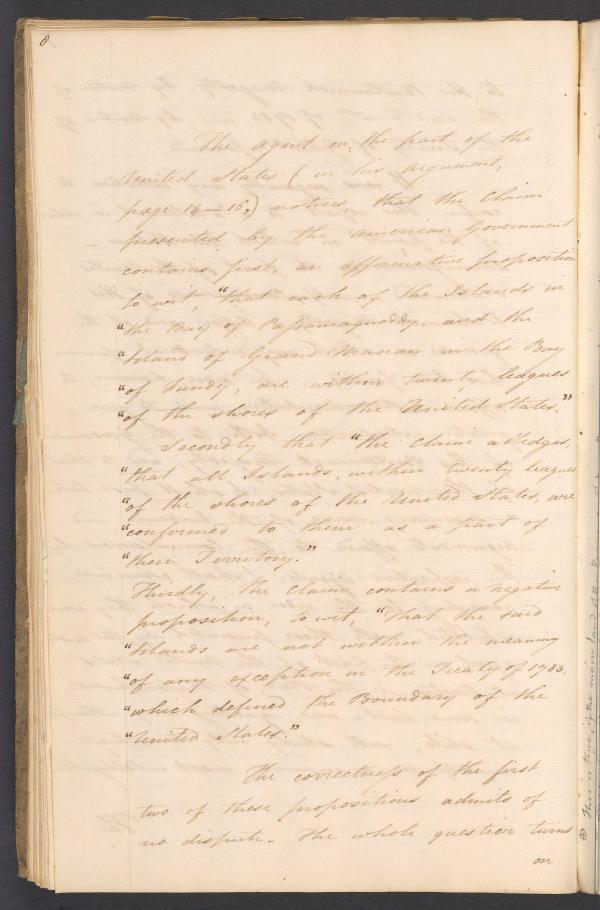 8
The agent on, the part of the
United States (in his argument,
page 14-16,) notices, that the Claim
presented by the American Government
contains first, an affirmative proposition
to wit, "that each of the Islands in
"the Bay of Passamaquoddy, and the
"Island of Grand Manan in the Bay
"of Fundy, are within twenty leagues
"of the shores of the United States."
Secondly that "the claim alledges,
"that all Islands, within twenty leagues
"of the shores of the United States, are
"confirmed to them as a part of
"their Territory."
Thirdly, the claim contains a negative
proposition, to wit, "that the said
"Islands are not within the meaning
"of any exception in the Treaty of 1783.
"which defined the Boundary of the
"United States."
The correctness of the first
two of these propositions admits of
no dispute. The whole question turns
on
This is true, of the main land of the